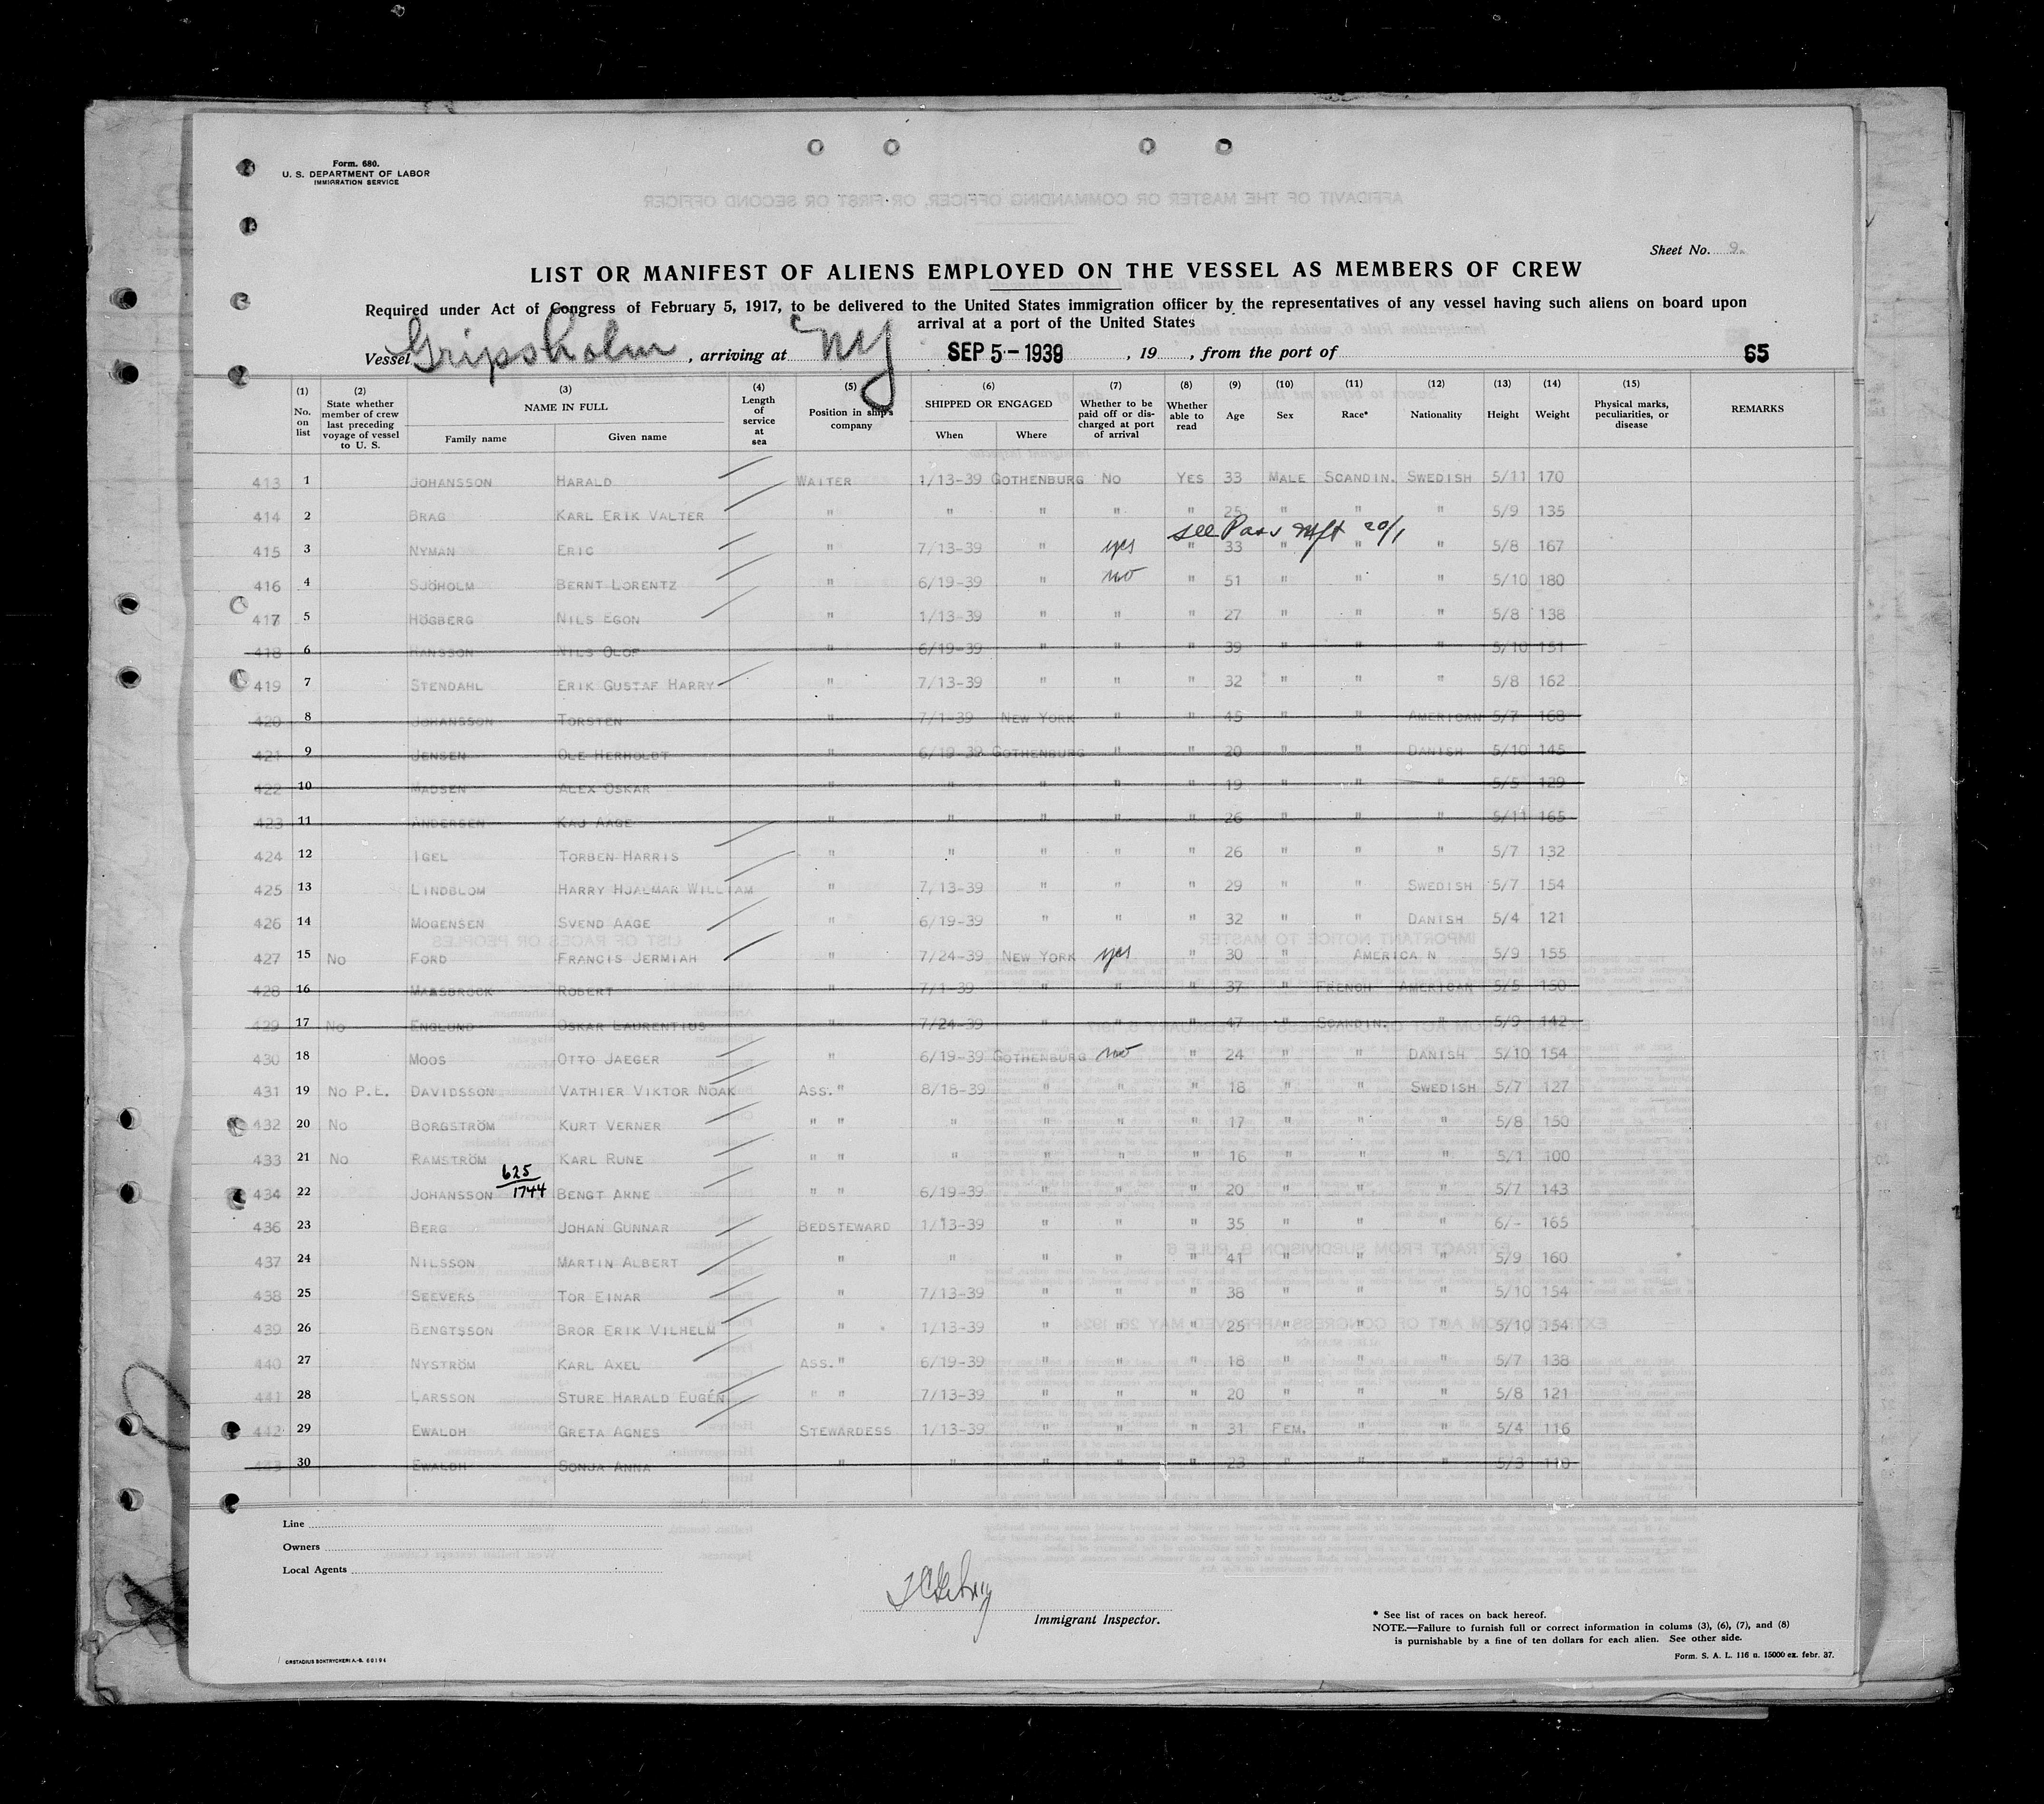 Form. 680.
U. S. DEPARTMENT OF LABOR
IMMIGRATION SERVICE
Sheet No. 9
LIST OR MANIFEST OF ALIENS EMPLOYED ON THE VESSEL AS MEMBERS OF CREW
Required under Act of Congress of February 5, 1917, to be delivered to the United States immigration officer by the representatives of any vessel having such aliens on board upon
arrival at a port of the United States
Vessel Gripsholm, arriving at NY SEP 5 - 1939, 19, from the port of 65
(1) No. on list (2) State whether member of crew last preceding voyage of vessel to U. S. (3) NAME IN FULL Family name Given name (4) Length of service at sea (5) Position in ship's company (6) SHIPPED OR ENGAGED When Where (7) Whether to be paid off or discharged at port of arrival (8) Whether able to read (9) Age (10) Sex (11) Race* (12) Nationality (13) Height (14) Weight (15) Physical marks, peculiarities, or disease REMARKS
413 1 JOHANSSON HARALD WAITER 1/13-39 GOTHENBURG NO YES 33 MALE SCANDIN. SWEDISH 5/11 170
414 2 BRAG KARL ERIK VALTER " " " " " 25 " " " 5/9 135
see Pass Mft 20/1
415 3 NYMAN ERIC " 7/13-39 " yes " 33 " " " 5/8 167
416 4 SJÖHOLM BERNT LORENTZ " 6/19-39 " no " 51 " " " 5/10 180
417 5 HÖGBERG NILS EGON " 1/13-39 " " " 27 " " " 5/8 138
418 6 HANSSON NILS OLOF " 6/19-39 " " " 39 " " " 5/10 151
419 7 STENDAHL ERIK GUSTAF HARRY " 7/13-39 " " " 32 " " " 5/8 162
420 8 JOHANSSON TORSTEN " 7/1-39 NEW YORK " " 45 " " AMERICAN 5/7 168
421 9 JENSEN OLE HERHOLDT " 6/19-39 GOTHENBURG " " 20 " " DANISH 5/10 145
422 10 MADSEN ALEX OSKAR " " " " " 19 " " " 5/5 129
423 11 ANDERSEN KAJ AAGE " " " " " 26 " " " 5/11 165
424 12 IGEL TORBEN HARRIS " " " " " 26 " " " 5/7 132
425 13 LINDBLOM HARRY HJALMAR WILLIAM " 7/13-39 " " " 29 " " SWEDISH 5/7 154
426 14 MOGENSEN SVEND AAGE " 6/19-39 " " " 32 " " DANISH 5/4 121
427 15 NO FORD FRANCIS JERMIAH " 7/24-39 NEW YORK yes " 30 " AMERICA N 5/9 155
428 16 MAASBROCK ROBERT " 7/1-39 " " " 37 " FRENCH AMERICAN 5/5 150
429 17 NO ENGLUND OSKAR LAURENTIUS " 7/24-39 " " " 47 " SCANDIN. " 5/9 142
430 18 MOOS OTTO JAEGER " 6/19-39 GOTHENBURG no " 24 " " DANISH 5/10 154
431 19 NO P.E. DAVIDSSON VATHIER VIKTOR NOAK ASS. " 8/18-39 " " " 18 " " SWEDISH 5/7 127
432 20 NO BORGSTRÖM KURT VERNER " " " " " " 17 " " " 5/8 150
433 21 NO RAMSTRÖM KARL RUNE " " " " " " 16 " " " 5/1 100
625
1744
434 22 JOHANSSON BENGT ARNE " " 6/19-39 " " " 20 " " " 5/7 143
436 23 BERG JOHAN GUNNAR BEDSTEWARD 1/13-39 " " " 35 " " " 6/- 165
437 24 NILSSON MARTIN ALBERT " " " " " 41 " " " 5/9 160
438 25 SEEVERS TOR EINAR " 7/13-39 " " " 38 " " " 5/10 154
439 26 BENGTSSON BROR ERIK VILHELM " 1/13-39 " " " 25 " " " 5/10 154
440 27 NYSTRÖM KARL AXEL ASS. " 6/19-39 " " " 18 " " " 5/7 138
441 28 LARSSON STURE HARALD EUGÉN " " 7/13-39 " " " 20 " " " 5/8 121
442 29 EWALDH GRETA AGNES STEWARDESS 1/13-39 " " " 31 FEM. " " 5/4 116
443 30 EWALDH SONJA ANNA " " " " " 23 " " " 5/3 110
Line
Owners
Local Agents
Immigrant Inspector.
* See list of races on back hereof.
NOTE.—Failure to furnish full or correct information in colums (3), (6), (7), and (8)
is punishable by a fine of ten dollars for each alien. See other side.
ORSTADIUS BOKTRYCKERI A.-B. 60194
Form. S. A. L. 116 n. 15000 ex. febr. 37.